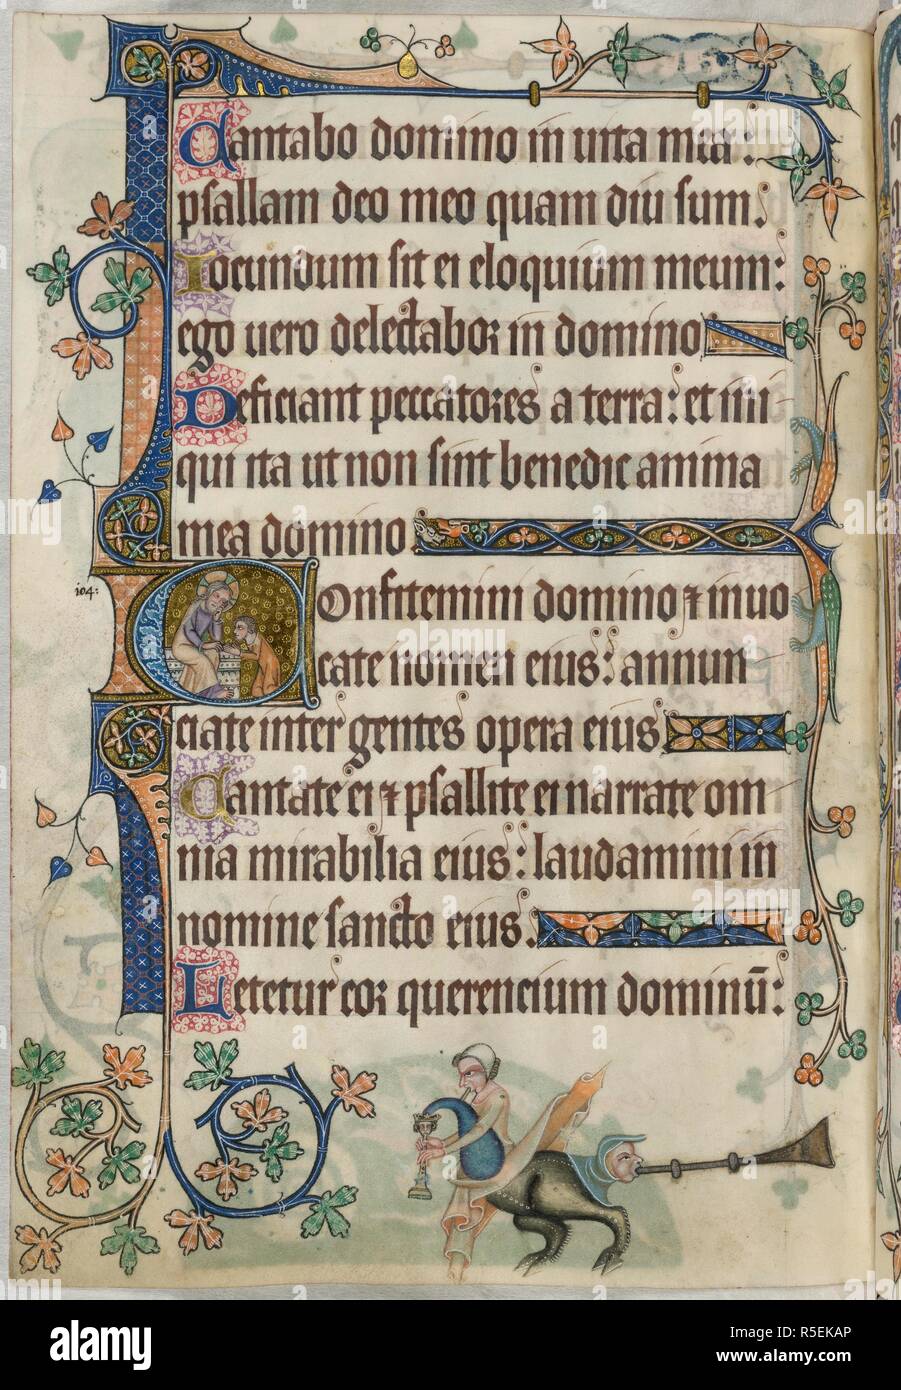 Cantabo domino in uita mea:
psallam deo meo quam diu sum.
Iocundum sit ei eloquium meum:
ego uero delectabor in domino
Deficiant peccatores a terra: et ini
qui ita ut non sint benedic anima
mea domino
104:
Confitemini domino ⁊ inuo
cate nomen eius: annun
ciate inter gentes opera eius
Cantate ei ⁊ psallite ei narrate om
nia mirabilia eius: laudamini in
nomine sancto eius.
Letetur cor querencium dominū:
alamy
Image ID: R5EKAP
www.alamy.com